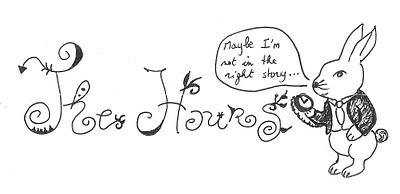 The Hours
Maybe I'm
not in the
right story...